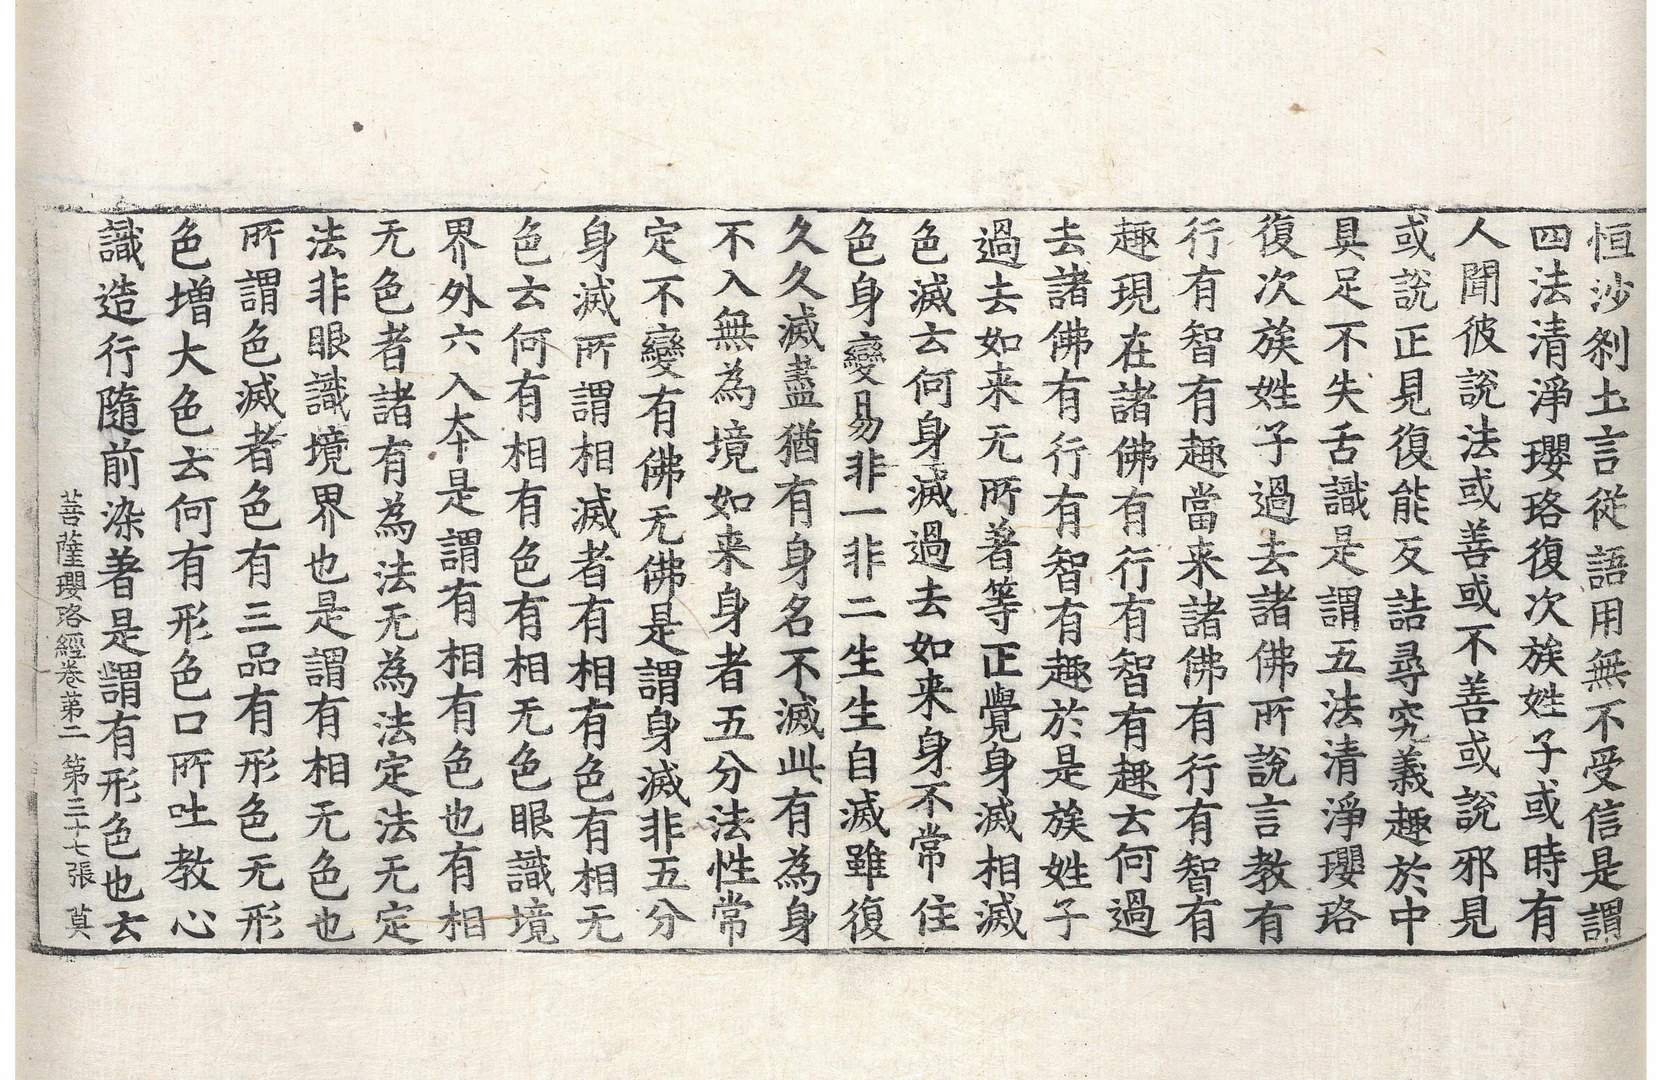 恒沙剎土言從語用無不受信是謂
四法清淨瓔珞復次族姓子或時有
人聞彼說法或善或不善或說邪見
或說正見復能反詰尋究義趣於中
具足不失舌識是謂五法清淨瓔珞
復次族姓子過去諸佛所說言教有
行有智有趣當来諸佛有行有智有
趣現在諸佛有行有智有趣云何過
去諸佛有行有智有趣於是族姓子
過去如来无所著等正覺身滅相滅
色滅云何身滅過去如来身不常住
色身變易非一非二生生自滅雖復
久久滅盡猶有身名不滅此有為身
不入無為境如来身者五分法性常
定不變有佛无佛是謂身滅非五分
身滅所謂相滅者有相有色有相无
色云何有相有色有相无色眼識境
界外六入本是謂有相有色也有相
无色者諸有為法无為法定法无定
法非眼識境界也是謂有相无色也
所謂色滅者色有三品有形色无形
色增大色云何有形色口所吐教心
識造行隨前染著是謂有形色也云
菩薩瓔珞經卷第二　第三十七張　莫